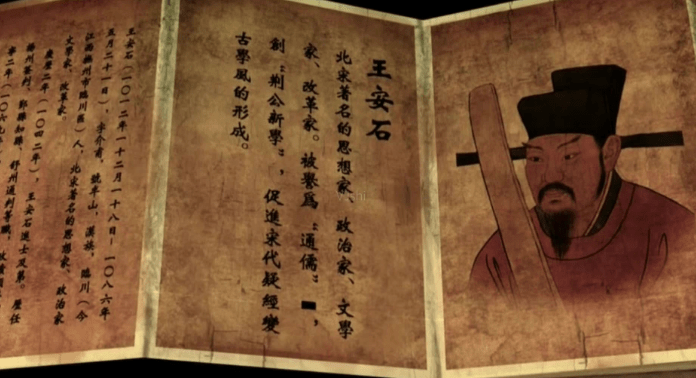 王安石
北宋著名的思想家、政治家、文學
家、改革家。被譽爲“通儒”，
創“荊公新學”，促進宋代疑經變
古學風的形成。
王安石（一〇二一年十二月十八日－一〇八六年
五月二十一日），字介甫，號半山，漢族，臨川（今
江西撫州市臨川區）人，北宋著名的思想家、政治家
文學家、改革家。
慶曆二年（一〇四二年），王安石進士及第。歷任
揚州簽判、鄞縣知縣、舒州通判等職，政績
寧二年（一〇六九